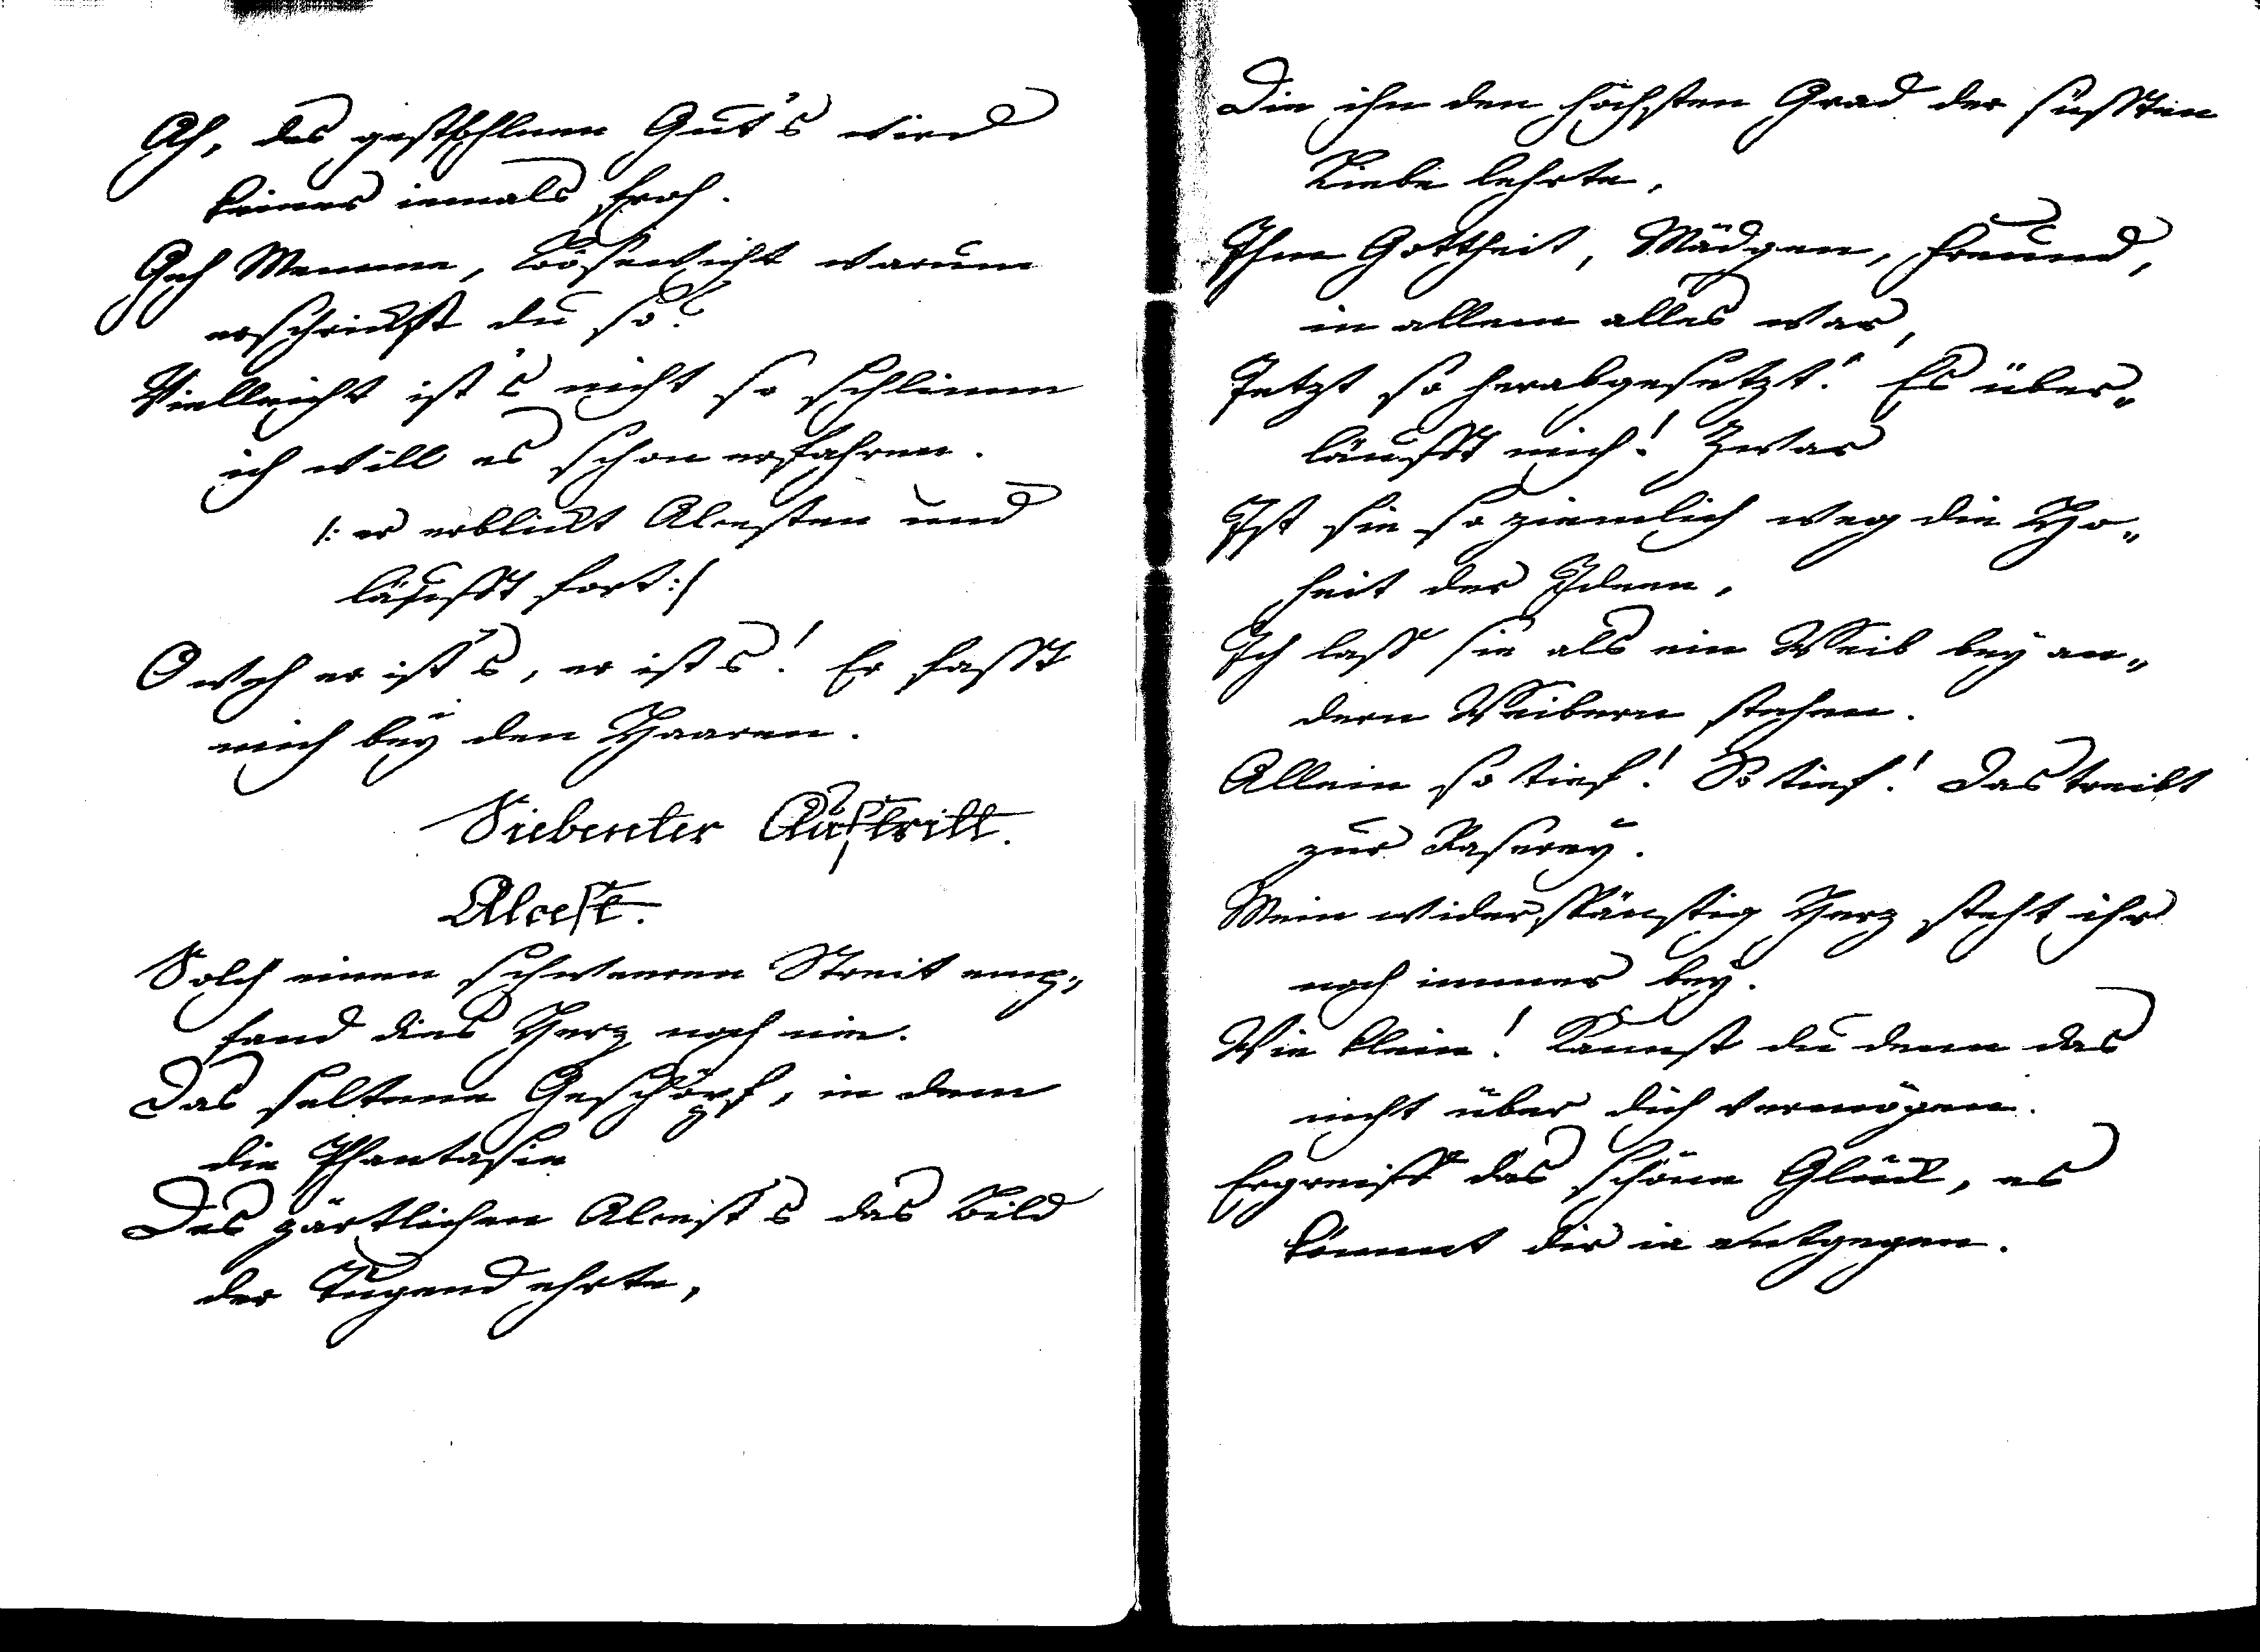 Ach, des gestohlnen Gut's wird
keiner iemals froh.
Geh Memme, Bösewicht warum
erschrickst du so?
Vielleicht ist's nicht so schlimm
ich will es schon erfahren.
/: er erblickt Alcesten und
läufft fort :/
O weh er ist's, er ist's! Er fasst
mich bey den Haaren.
Siebenter Auftritt.
Alcest.
Solch einen schweeren Streit emp„
fand dies Herz noch nie.
Das seltene Geschöpf, in dem
die Phantasie
Des zärtlichen Alcest's das Bild
der Tugend ehrte,
Die ihn den höchsten Grad der süssten
Liebe lehrte,
Ihm Gottheit, Mädgen, Freund,
in allem alles war,
Jetzt so herabgesetzt! Es über„
läufft mich! Zwar
Ist sie so ziemlich weg die Ho„
heit der Ideen,
Ich lass sie als ein Weib bey an„
dern Weibern stehen.
Allein so tief! So tief! Das treibt
zur Raserey.
Mein widerspänstig Herz steht ihr
noch immer bey.
Wie klein! Kannst du denn das
nicht über dich vermögen.
Ergreiff das schöne Glück, es
kömmt dir ia entgegen.